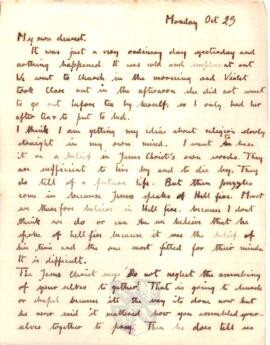 Monday Oct 23
My own dearest.
It was just a very ordinary day yesterday and
nothing happened. It was cold and unpleasant out
We went to Church in the morning and Violet
took Clese out in the afternoon she did not want
to go out before tea by herself so I only had her
after tea to put to bed.
I think I am getting my ideas about religion slowly
straight in my own mind. I want to base
it on a belief in Jesus Christ's own words. They
are sufficient to live by and to die by. They
do tell of a future life. But then puzzles
come in because Jesus speaks of Hell fire. Must
we therefore believe in Hell fire because I dont
think we do or can be we believe that he
spoke of hell fire because it was the belief of
his time and the one most fitted for their minds
It is difficult.
The Jesus Christ says Do not neglect the assembling
of your selves to gether. That is going to church
or chapel because it's the way its done now but
he never said it mattered how you assembled your
selves together to pray. Then he does tell us